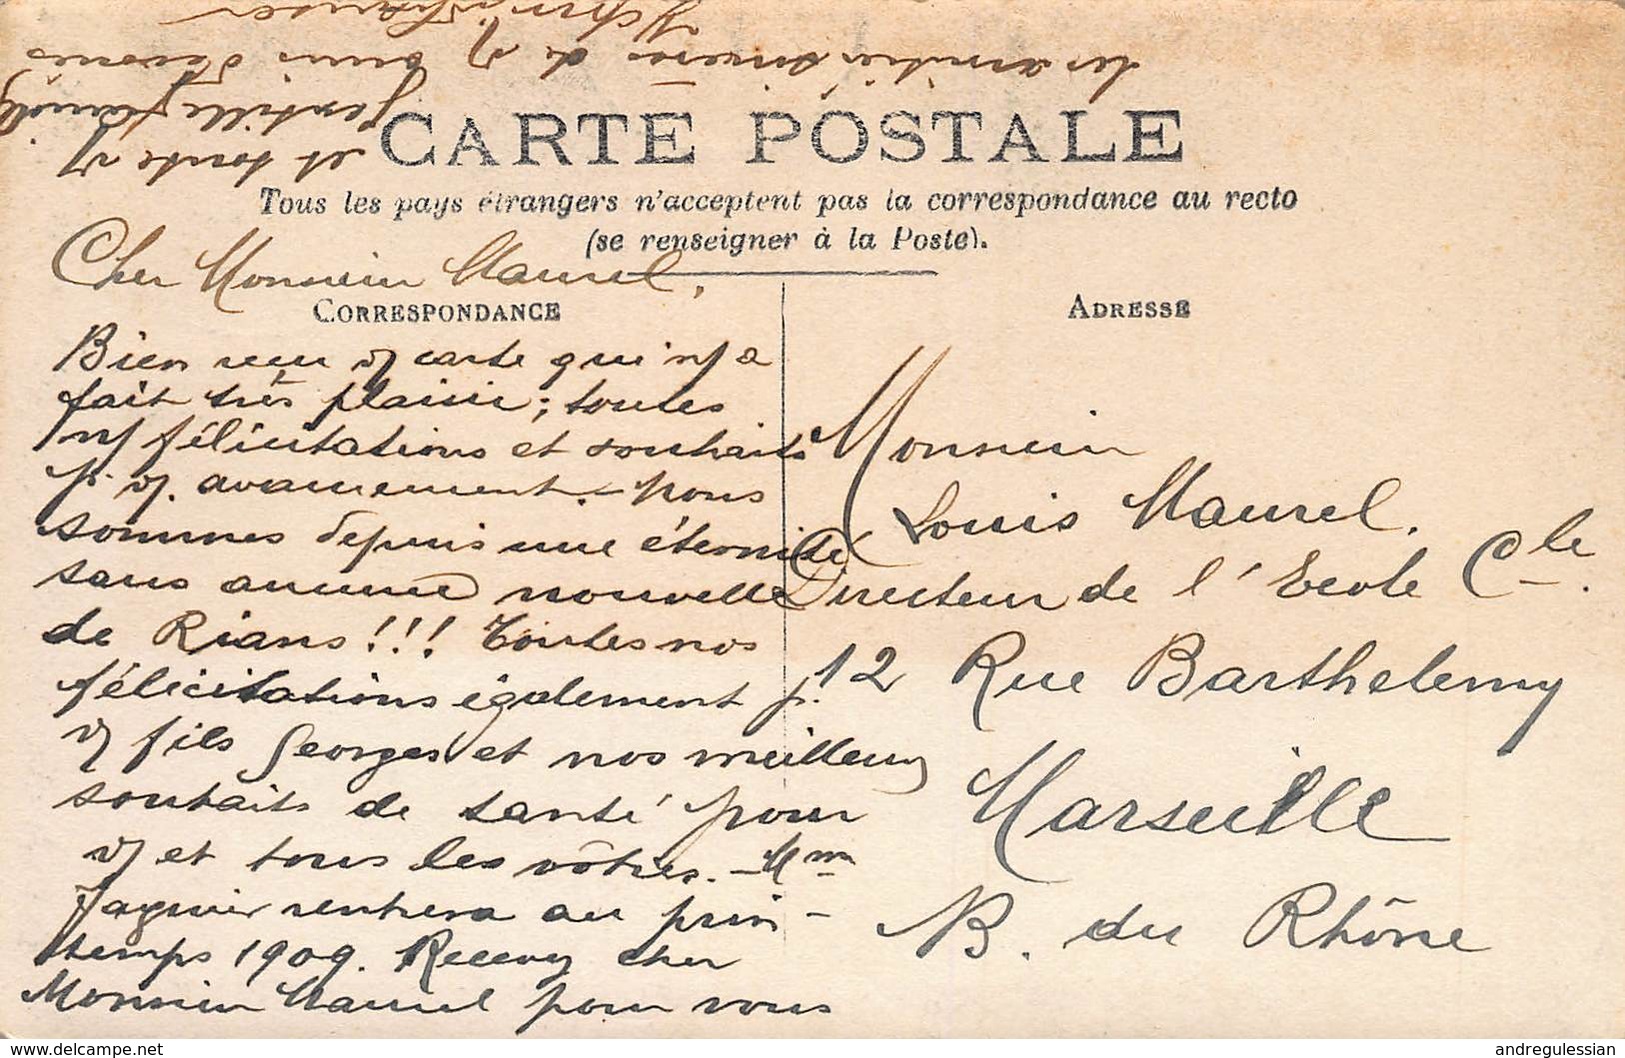 CARTE POSTALE
Tous les pays étrangers n'acceptent pas la correspondance au recto
(se renseigner à la Poste).
CORRESPONDANCE
Cher Monsieur Maurel,
Bien reçu v/ carte qui n/ a
fait très plaisir; toutes
n/ félicitations et souhaits
p. v/. avancement. - Nous
sommes depuis une éternité
sans aucune nouvelle
de Rians!!! Toutes nos
félicitations également p.
v/ fils Georges et nos meilleurs
souhaits de santé pour
v/ et tous les vôtres. - Mme
rentrera au prin-
temps 1909. Recevez cher
Monsieur Maurel pour vous
et toute v/
gentille famille
les amitiés sincères de v/ amis dévoués
ADRESSE
Monsieur
Louis Maurel.
Directeur de l'Ecole Cle.
12 Rue Barthelemy
Marseille
B. du Rhône
delcampe.net
andregulessian